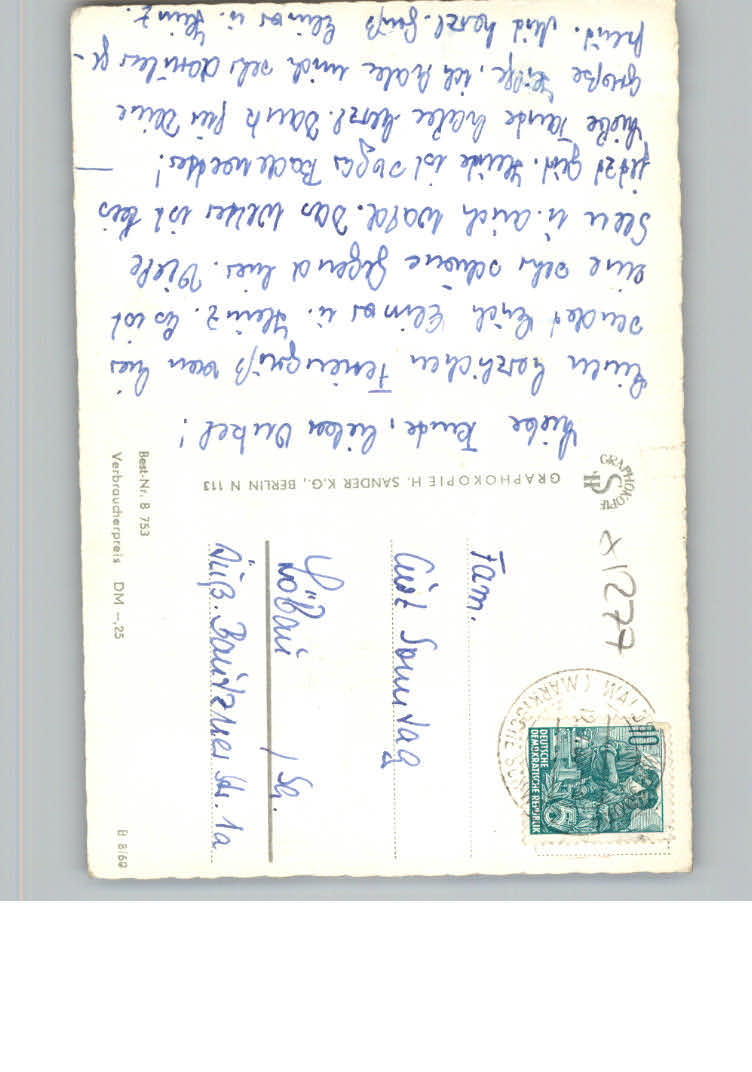 Liebe Tante, lieber Onkel!
Einen herzlichen Feriengruß von hier
sendet Euch Elinor u. Heinz. Es ist
eine sehr schöne Gegend hier. Viele
Seen u. auch Wald. Das Wetter ist bis
jetzt gut. Heute ist sogar Badewetter!
Liebe Tante habe herzl. Dank für Deine
große Hilfe, ich habe mich sehr darüber ge-
freut. Mit herzl. Gruß Elinor u. Heinz.
GRAPHOKOPIE H. SANDER K.G., BERLIN N 113
GRAPHOKOPIE
HS
Best-Nr. B 753
Verbraucherpreis DM -,25
B 8/60
81277
Fam.
Curt Sonntag
Löbau / Sa.
Äuß. Bautzner Str. 1a
10
DEUTSCHE
DEMOKRATISCHE REPUBLIK
(MÄRKISCHE